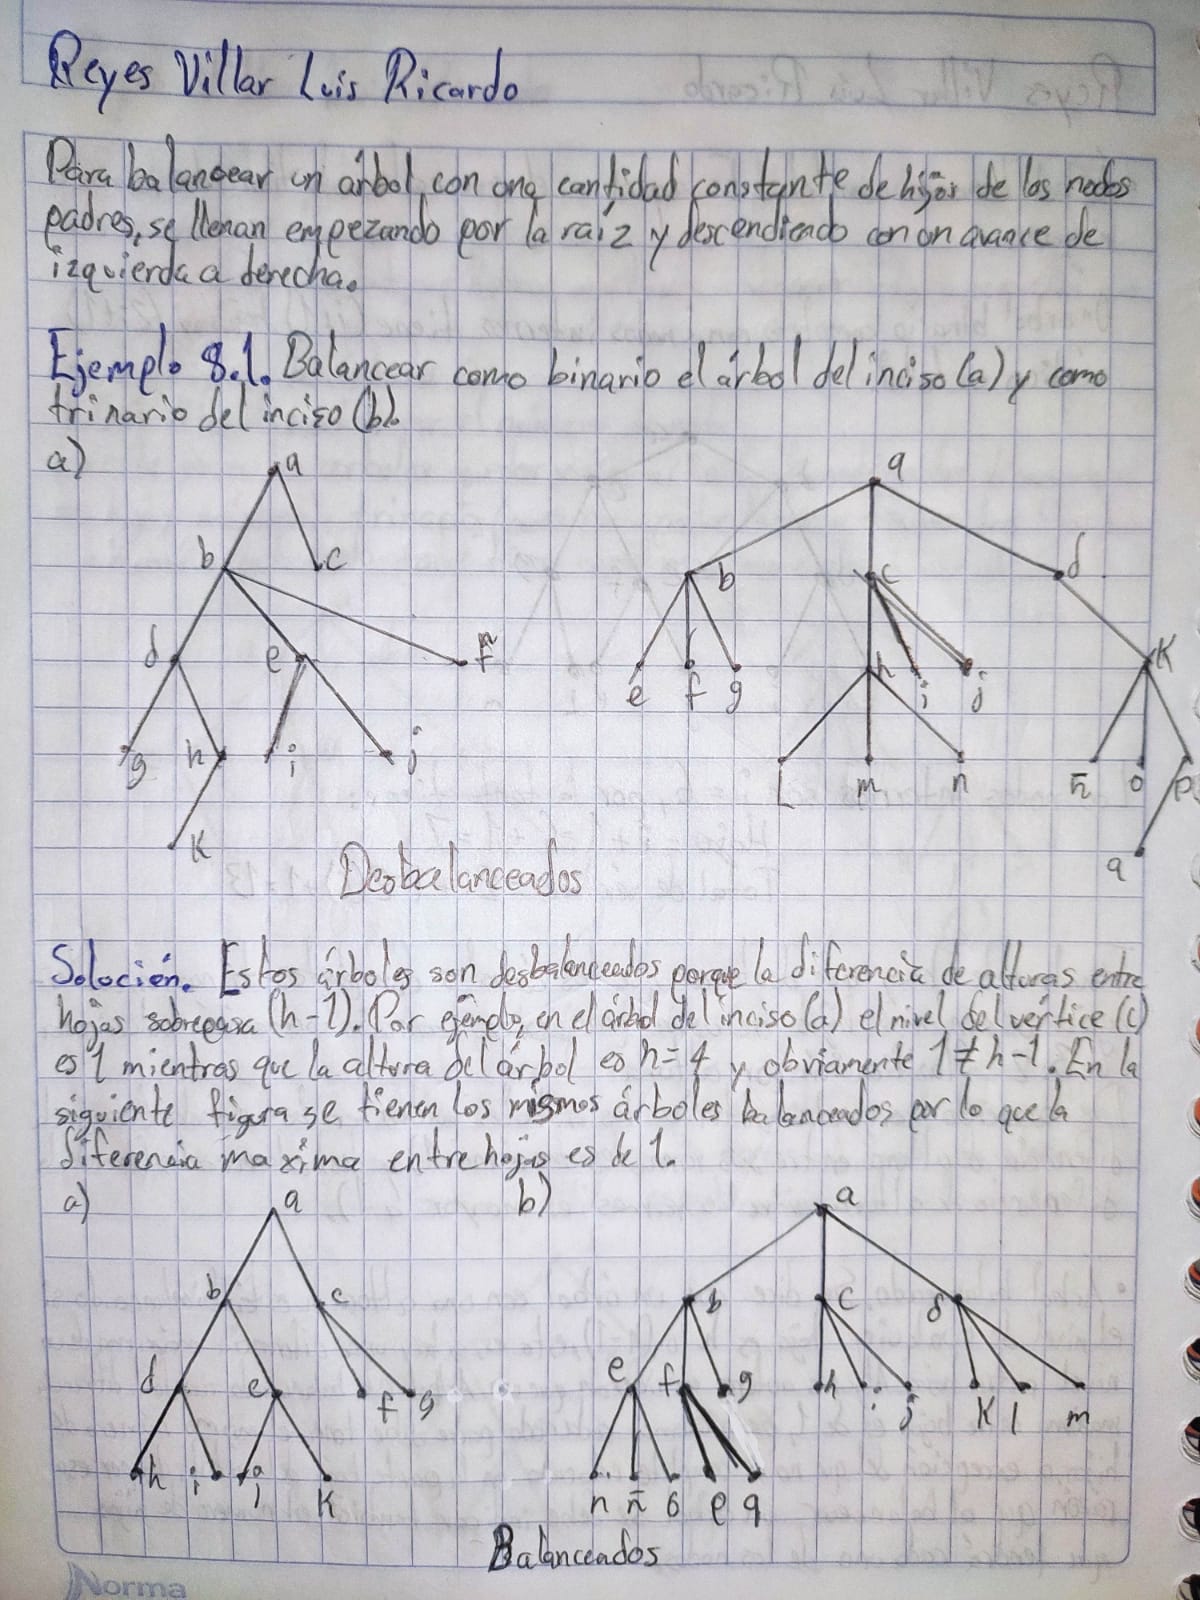 Reyes Villar Luis Ricardo
Para balancear un árbol, con una cantidad constante de hijos de los nodos
padres, se llenan empezando por la raíz y descendiendo con un avance de
izquierda a derecha.
Ejemplo 8.1. Balancear como binario el árbol del inciso (a) y como
trinario del inciso (b).
a)
a a
b c b c d
d e f e f g h i j K
g h i j L m n ñ o p
K q
Desbalanceados
Solución. Estos árboles son desbalanceados porque la diferencia de alturas entre
hojas sobrepasa (h-1). Por ejemplo, en el árbol del inciso (a) el nivel del vértice (c)
es 1 mientras que la altura del árbol es h=4 y obviamente 1≠h-1. En la
siguiente figura se tienen los mismos árboles balanceados por lo que la
diferencia maxima entre hojas es de 1.
a) a b) a
b c b c d
d e f g e f g h i j K l m
h i j K n ñ o p q
Balanceados
Norma